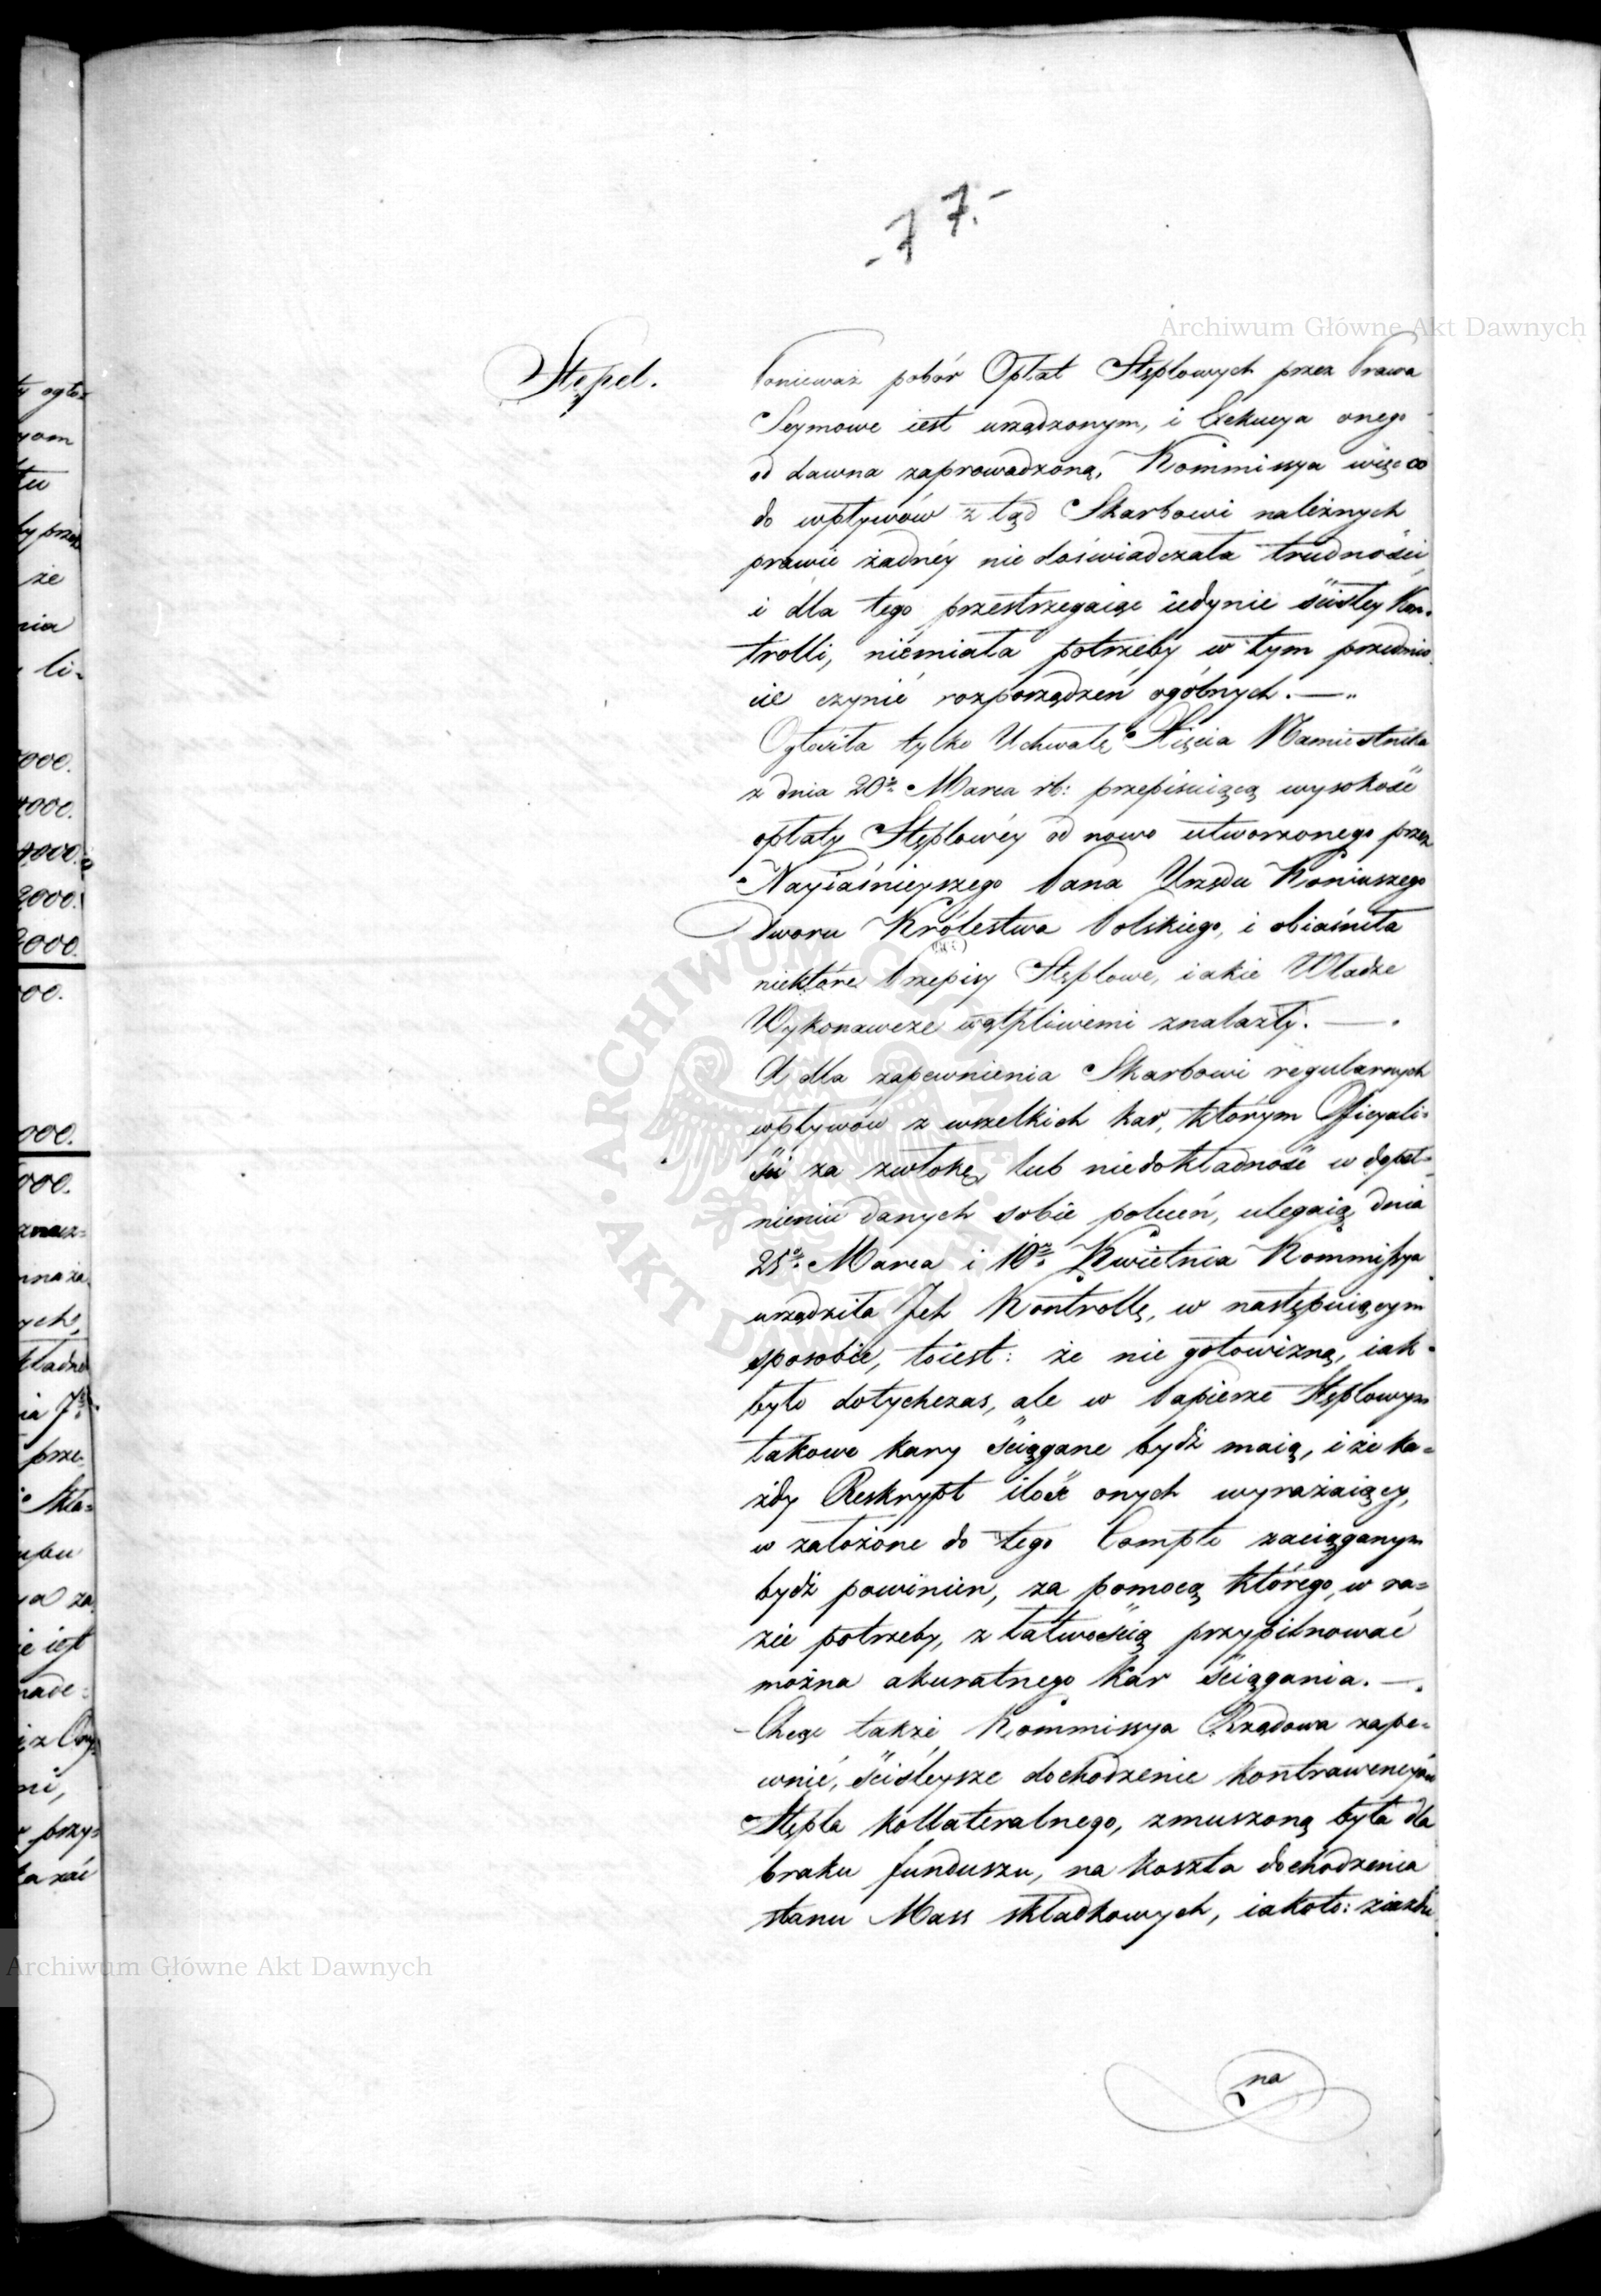 77.-
Archiwum Główne Akt Dawnych
Stępel.
Ponieważ pobór Opłat Stęplowych przez Prawa
Seymowe iest urządzonym, i Exekucya onego
od dawna zaprowadzoną, Kommissya więc co
do wpływów z tąd Skarbowi należnych
prawie żadnéy nie doświadczała trudności
i dla tego przestrzegaiąc iedynie ścisłey Kon-
trolli, niemiała potrzeby w tym przedmio-
cie czynić rozporządzeń ogólnych. —
Ogłosiła tylko Uchwałę Xięcia Namiestnika
z dnia 20º Marca rb: przepisuiącą wysokość
opłaty Stęplowéy od nowo utworzonego przez
Nayiaśnieyszego Pana Urzędu Koniuszego
Dworu Królestwa Polskiego, i obiaśniła
niektóre Przepisy Stęplowe, iakie Władze
Wykonawcze wątpliwemi znalazły. —
A dla zapewnienia Skarbowi regularnych
wpływów z wszelkich kar, którym Oficyali-
ści za zwłokę, lub niedokładność w dopeł-
nieniu danych sobie poleceń, ulegaią, dnia
25º Marca i 10º Kwietnia Kommissya
urządziła Jch Kontrollę, w następuiącym
sposobie, toiest: że nie gotowizną, iak
było dotychczas, ale w Papierze Stęplowym
takowe kary ściągane bydź maią, i że ka-
żdy Reskrypt ilość onych wyrażaiący,
w założone do tego Compto zaciąganym
bydź powinien, za pomocą którego, w ra-
zie potrzeby, z łatwością przypilnować
można akuratnego kar ściągania. —
Chcąc także Kommissya Rządowa zape-
wnić, ściśleysze dochodzenie kontrawencyów
Stępla kollateralnego, zmuszoną była dla
braku funduszu, na koszta dochodzenia
stanu Mass składkowych, iakoto: ziazdu
na
Archiwum Główne Akt Dawnych
ARCHIWUM GŁÓWNE
AKT DAWNYCH